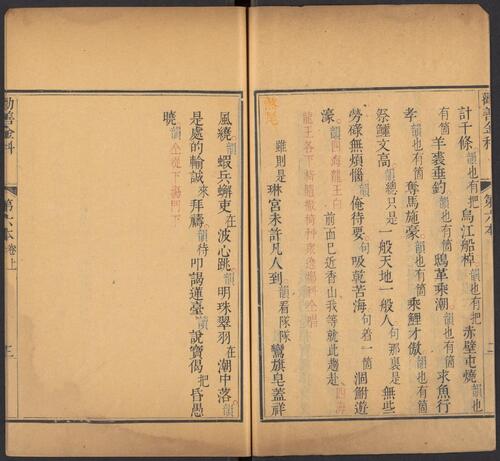 勸善金科 第六本 二
計千條韻也有把烏江船棹韻也有把赤壁屯燒韻也
有箇羊裘垂釣韻也有箇鴟革乘潮韻也有箇求魚行
孝韻也有箇奪馬施豪韻也有箇乘鯉才傲韻也有箇
祭鱷文高韻總只是一般天地一般人句那裏是無些
勞碌無煩惱俺待要句吸乾苦海句着一箇涸鮒遊
濠韻四海龍王白前面巳近香山我等就此趲赴四海
龍王各下椅隨撤椅科衆遶場科仝唱
煞尾
雖則是琳宮未許凡人到韻看隊隊鸞旗皂蓋祥
風繞韻蝦兵蠏吏在波心跳韻明珠翠羽在潮中落韻
是處的輸誠來拜禱韻待叩謁蓮臺讀說寶偈把昏愚
曉韻仝從下場門下
勸善金科 第六本卷上 三